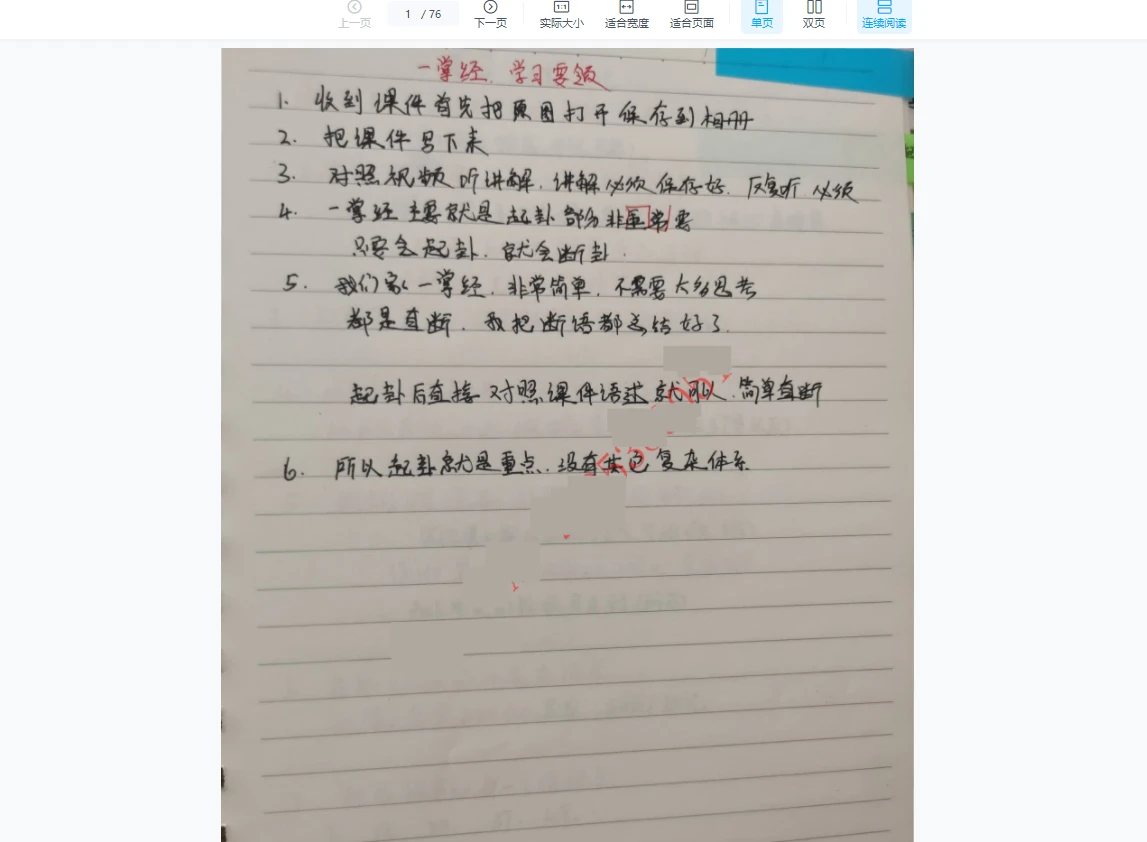 上一页
1 / 76
下一页
实际大小
适合宽度
适合页面
单页
双页
连续阅读
一掌经 学习要领
1. 收到课件首先把原图打开保存到相册
2. 把课件写下来
3. 对照视频听讲解.讲解必须保存好.反复听.必须
4. 一掌经主要就是起卦部分非重常要
只要会起卦.就会断卦.
5. 我们家一掌经.非常简单.不需要太多思考
都是直断.我把断语都总结好了.
起卦后直接对照课件语述就可以.简单直断
6. 所以起卦就是重点.没有其它复杂体系